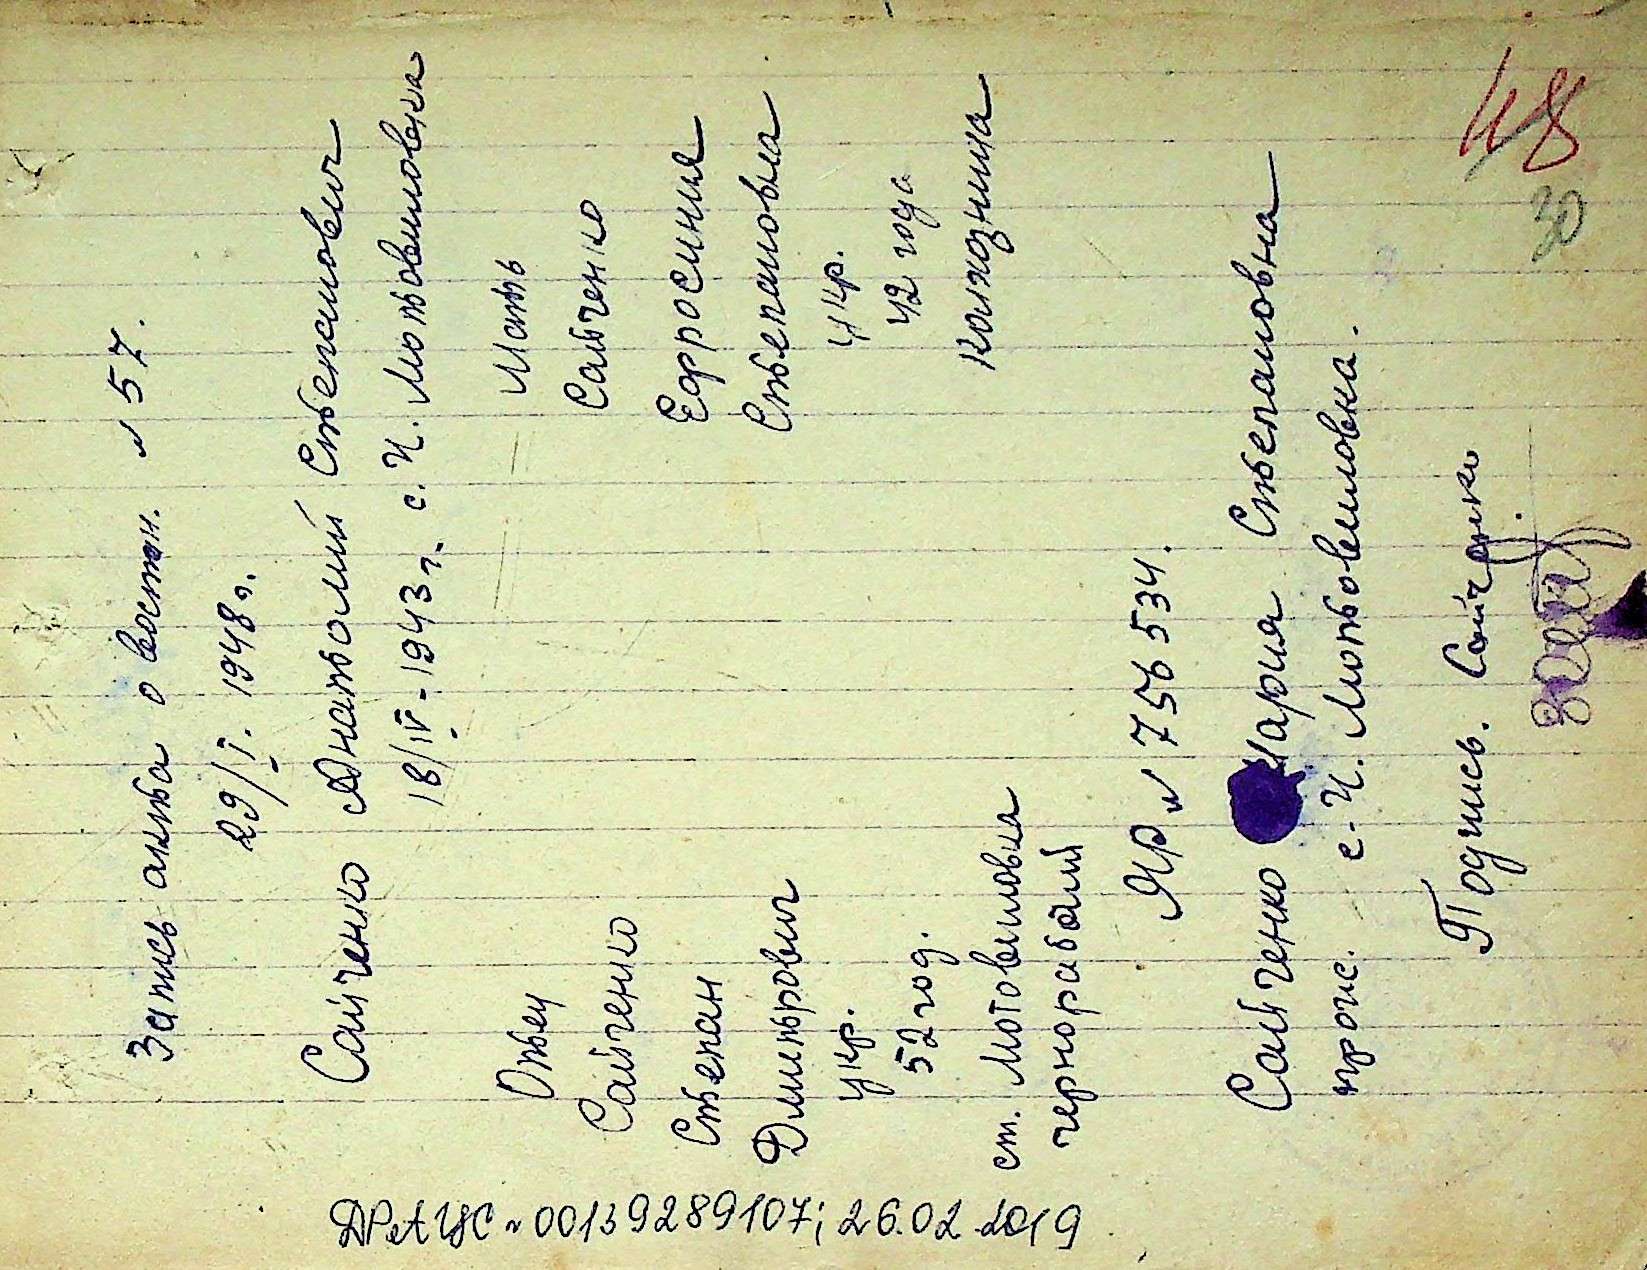 Запись акта о восстан. № 57.
29/I. 1948 г.
Сайченко Анатолий Степанович
18/IV - 1943 г. с. И. Мотовиловка
Отец
Сайченко
Степан
Дмитрович
укр.
52 год.
ст. Мотовиловка
чернорабочий
Мать
Сайченко
Ефросиния
Степановна
укр.
42 года
колхозница
ЯР № 756534.
Сайченко Мария Степановна
прож. с. И. Мотовиловка.
Подпись. Сайченко
ДРАЦС № 00139289107; 26.02.2019
48
30